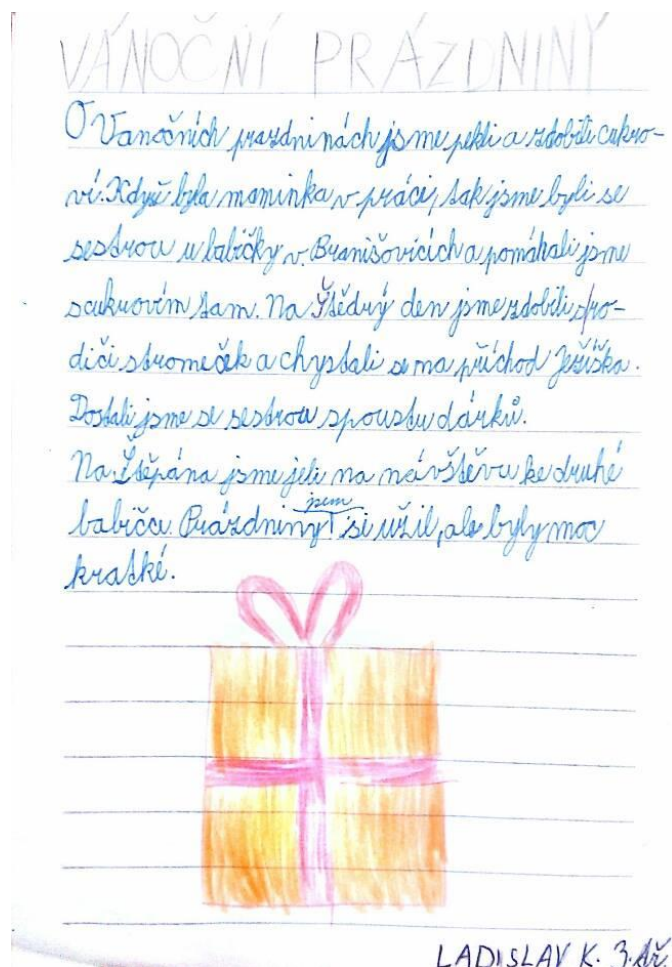 VÁNOČNÍ PRÁZDNINY
O Vanočních prazdninách jsme pekli a zdobili cukro-
ví. Když byla maminka v práci, tak jsme byli se
sestrou u babičky v Branišovicích a pomáhali jsme
s cukrovím tam. Na Štědrý den jsme zdobili s ro-
diči stromeček a chystali se na příchod Ježíška.
Dostali jsme se sestrou spoustu dárků.
Na Štěpána jsme jeli na návštěvu ke druhé
babičce. Prázdniny jsem si užil, ale byly moc
kratké.
LADISLAV K. 3. tř.